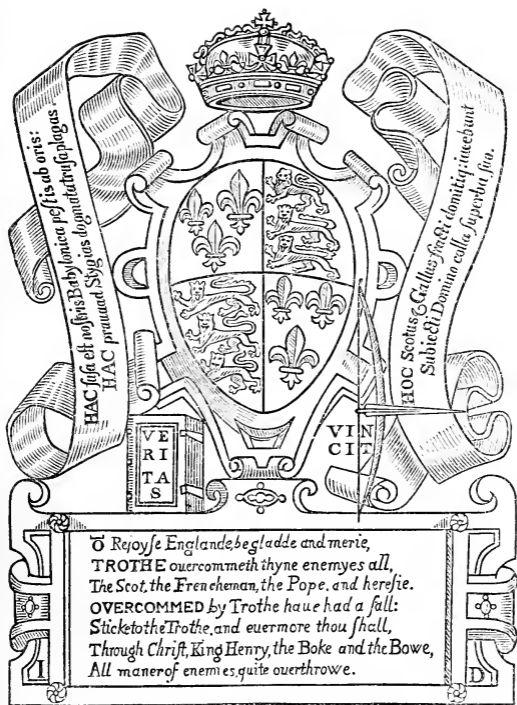 HAC fusa est nostris Babylonica pestis ab oris:
HAC prava ad Stygias dogmata trusa plagas.
HOC Scotus & Gallus fracti domitiq; iacebunt
Subiecti Domino colla superba suo.
VE
RI
TA
S
VIN
CIT
Ō Rejoyſe Englande, be gladde and merie,
TROTHE ouercommeth thyne enemyes all,
The Scot, the Frencheman, the Pope, and hereſie.
OVERCOMMED by Trothe haue had a fall:
Sticke to the Trothe, and euermore thou ſhall,
Through Chriſt, King Henry, the Boke and the Bowe,
All maner of enemies, quite ouerthrowe.
I
D